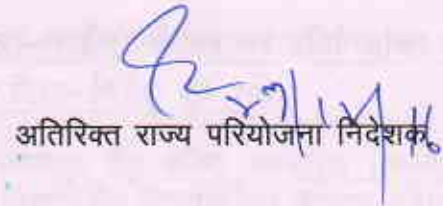 अतिरिक्त राज्य परियोजना निदेशक